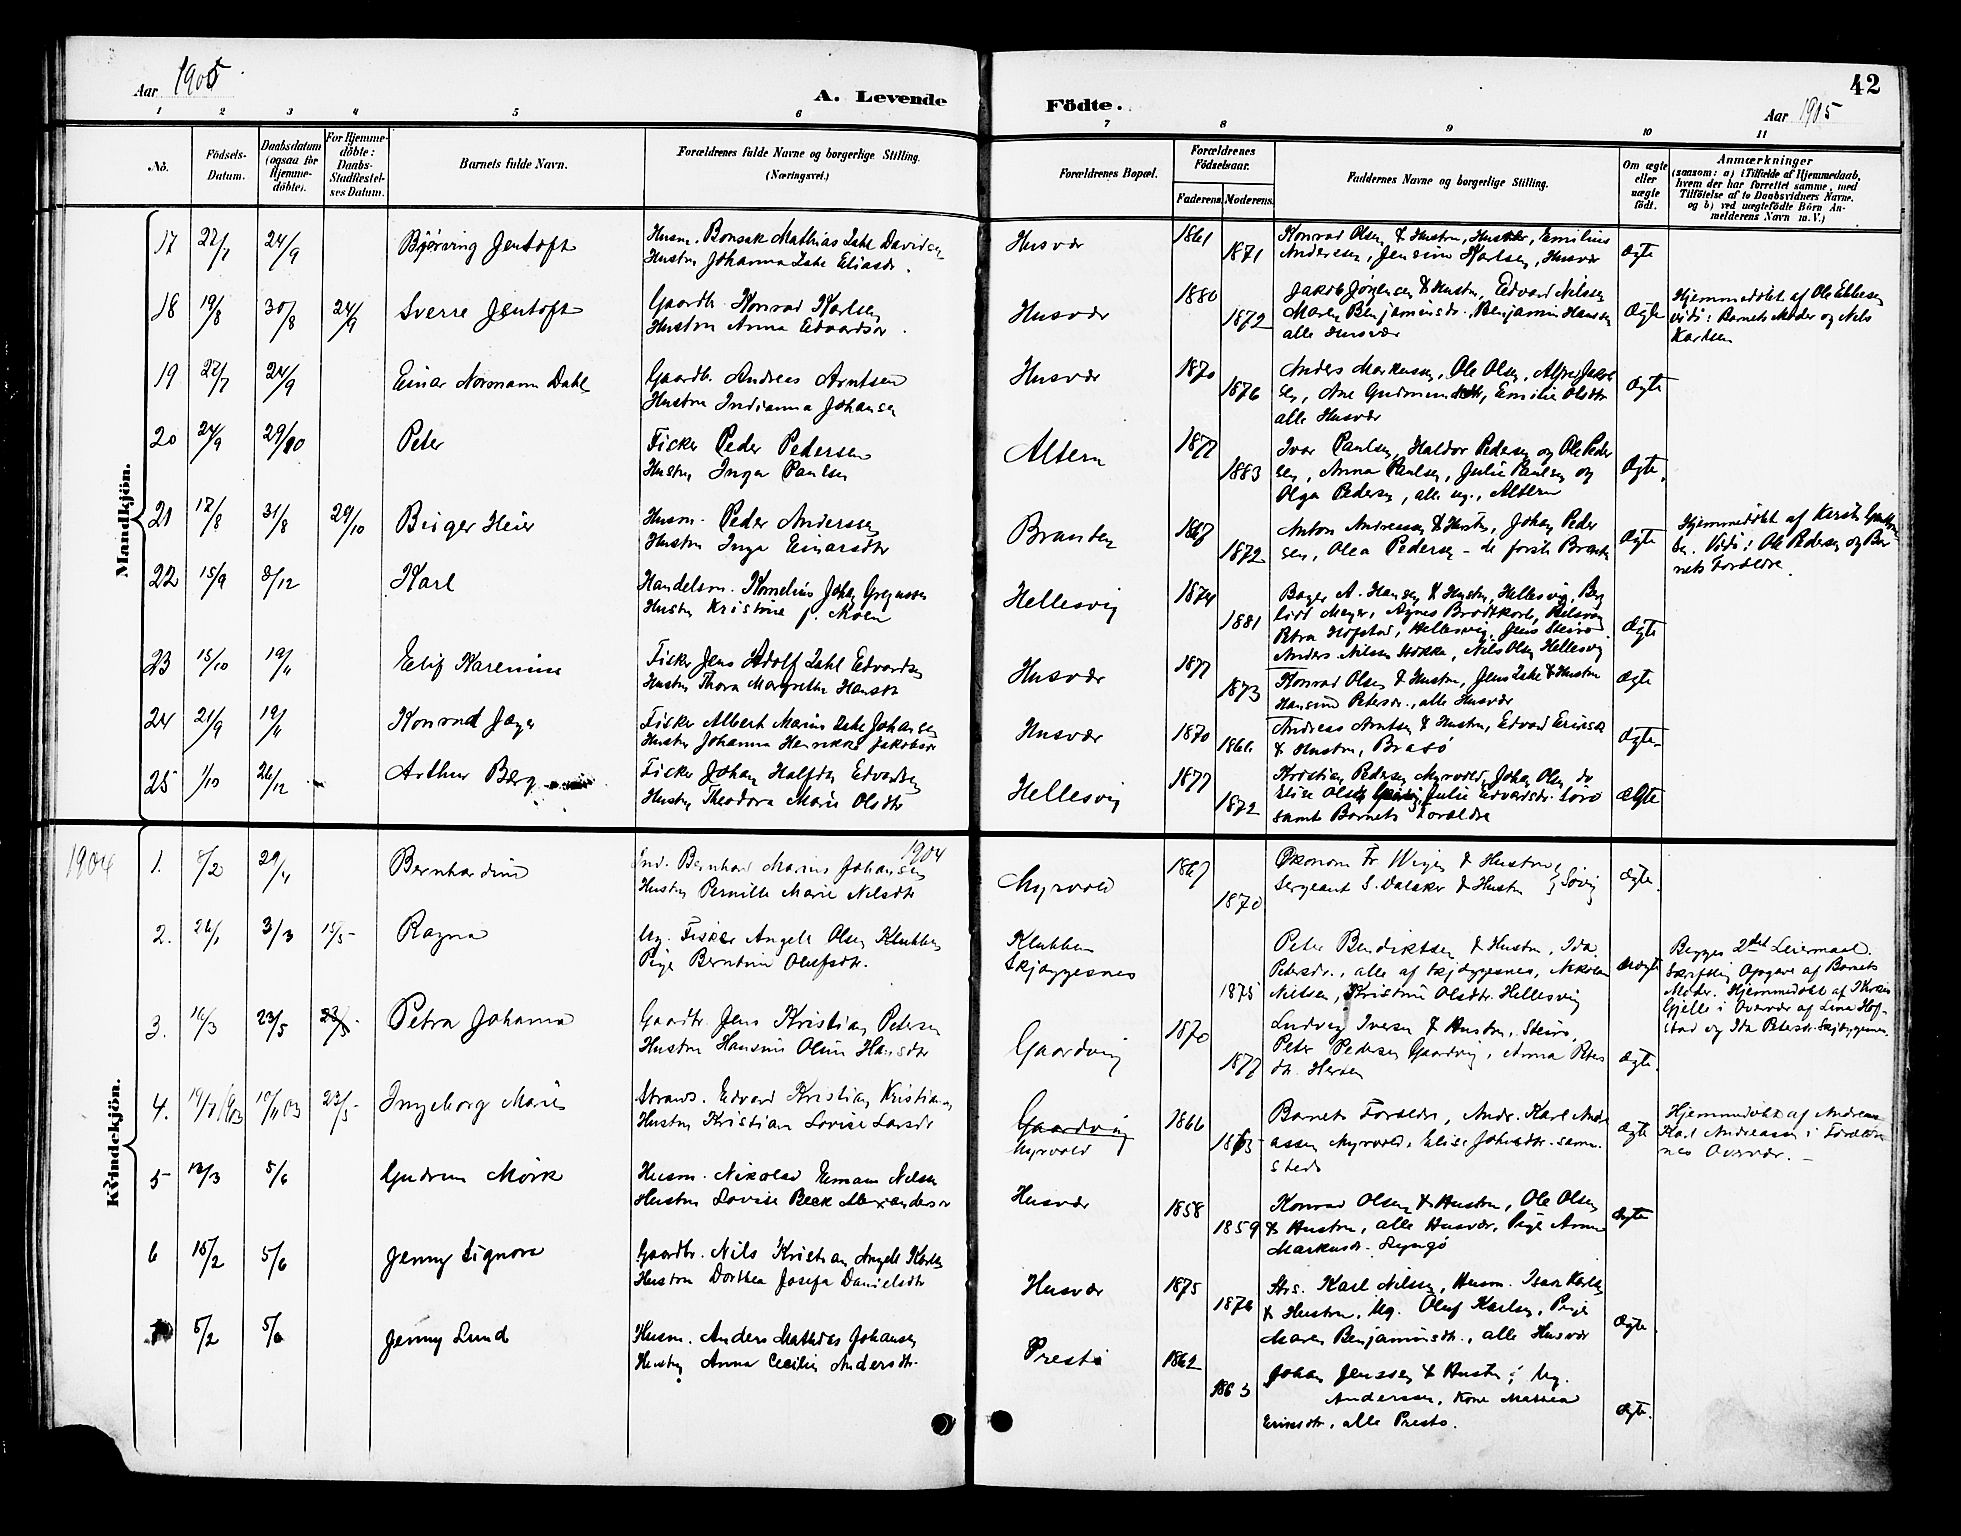 Aar 1905
A. Levende
Födte.
42
Aar 1905
1 2 3 4 5 6 7 8 9 10 11
No.
Födsels-Datum.
Daabsdatum (ogsaa for Hjemme-döbte).
For Hjemme-döbte: Daabs-Stadfæstel-ses Datum.
Barnets fulde Navn.
Forældrenes fulde Navne og borgerlige Stilling. (Næringsvei.)
Forældrenes Bopæl.
Forældrenes Födselsaar.
Faderens. Moderens.
Faddernes Navne og borgerlige Stilling.
Om ægte eller uægte födt.
Anmærkninger
(saasom: a) i Tilfælde af Hjemmedaab,
hvem der har forrettet samme, med
Tilföielse af to Daabsvidners Navne,
og b) ved uægtefödte Börn An-
melderens Navn m. V.)
Mandkjön.
17 22/7 24/9 Bjørving Jentoft
Husm. Bonsak Mathias Zahl Davidsen
Hustru Johanna Zahl Eliasdr.
Husvær 1861 1871
Konrad Olsen & Hustru, Husvær, Emilius
Andersen, Jensine Karlsen, Husvær
Ægte
18 19/8 30/8 24/9 Sverre Jentoft
Gaardbr. Konrad Karlsen
Hustru Anna Edvardsdr.
Husvær 1880 1872
Jakob Jørgensen & Hustru, Edvard Nilssen
Maren Benjaminsdr., Benjamin Hansen
alle Husvær
Ægte
Hjemmedøbt af Ole Ellesen
Vidn: Barnets Moder og Nils
Karlsen
19 22/7 24/9 Einar Normann Dahl
Gaardb. Andreas Arntsen
Hustru Indianna Johansen
Husvær 1870 1876
Anders Markussen, Ole Olsen, Alfred Jakob
sen, Ane Gudmundsdtr, Emilie Olsdtr
alle Husvær
Ægte
20 24/9 29/10 Peter
Fisker Peder Pedersen
Hustru Inga Paulsen
Altern 1877 1883
Ivar Paulsen, Haldor Pedersen og Ole Peder
sen, Anna Paulsen, Julie Paulsen og
Olga Pedersen, alle ug., Altern
Ægte.
21 17/8 31/8 29/10 Birger Heier
Husm. Peder Anderssen
Hustru Inga Einarsdtr
Branten 1867 1872
Anton Andreassen & Hustru, Johan Peder
sen, Olea Pedersen - de første Branten
Ægte
Hjemmedøbt af
Vidn: Ole Pedersen og Bar
nets Forældre.
22 15/9 8/12 Karl
Handelsm. Kornelius Johan Gregussen
Hustru Kristine f. Moen
Hellesvig 1874 1881
Bager A. Hansen & Hustru, Hellesvig, Berg
liot Meyer, Agnes Brodtkorb,
Petra Hofstad, Hellesvig, Jens Steiro
Anders Nilssen Stokke, Nils Olsen Hellesvig
Ægte
23 15/10 19/11 Eilif Karenius
Fisker Jens Adolf Zahl Edvardsen
Hustru Thora Margrethe Hansdtr
Husvær 1877 1873
Konrad Olsen & Hustru, Jens Zahl & Hustru
Hansine Petersdr., alle Husvær
Ægte
24 21/9 19/11 Konrad Jæger
Fisker Albert Marius Zahl Johansen
Hustru Johanna Henrikke Jakobsdr
Husvær 1870 1866
Andreas Arntsen & Hustru, Edvard Eriksen
& Hustru, Brasø
Ægte
25 1/10 26/12 Arthur Berg
Fisker Johan Halfdan Edvardsen
Hustru Theodora Marie Olsdtr
Hellesvig 1877 1872
Kristian Pedersen Myrvold, Johan Olsen do
Elise Olsen Julie Edvardsdr. Sørø
samt Barnets Forældre
Ægte
Kvindekjön.
1904
1904
1. /2 29/4 Bernhardine
Ind. Bernhard Marius Johansen
Hustru Pernille Marie Nilsdtr
Myrvold 1867 1870
Økonom Fr. Wigen & Hustru
Sergeant S. Dalsker & Hustru Søvig
Ægte.
2. 26/1 3/3 15/5 Ragna
Ug. Fisker Angell Olsen Klubben
Pige Berntine Olufsdtr.
Klubben
Skjæggesnes
1875
Peter Bendiktsen & Hustru, Ida
Petersdr., alle af Skjæggesnes, Nikolai
Nielsen, Kristine Olsdtr. Hellesvig
Uægte
Begges 2det Leiermaal.
Skriftlig Opgave af Barnets
Moder. Hjemmedøbt af
Gjelle i Overvær af Lina Hof-
stad og Ida Petersdr Skjæggesnes.
3. 16/3 23/5 23/5 Petra Johanna
Gaardbr. Jens Kristian Petersen
Hustru Hansine Oline Hansdtr
Gaardvig 1870 1877
Ludvig Iversen & Hustru, Steiro,
Peter Pedersen Gaardvig, Anna Peters
dr. Hersen
Ægte.
4. 19/7 1903 10/11 03 23/5 Ingeborg Marie
Strands. Edvard Kristian Kristiansen
Hustru Kristiane Lovise Larsdr
Gaardvig
Myrvold
1866 1863
Barnets Forældre, Andr. Karl Andre
assen Myrvold, Elise Johansdtr. samme
steds
Ægte
Hjemmedøbt af Andreas
Karl Andreassen i Forældre
nes Overvær. -
5 12/3 5/6 Gudrun Mørk
Husm. Nikolai Ermann Nilsen
Hustru Lovise Beck Alexandersdr
Husvær 1858 1859
Konrad Olsen & Hustru, Ole Olsen
& Hustru, alle Husvær, Pige Anna
Markusdr. Lyngø
Ægte
6 15/2 5/6 Jenny Signora
Gaardbr. Nils Kristian Angell Karlsen
Hustru Dorthea Josefa Danielsdtr
Husvær 1875 1876
Strs. Karl Nilssen, Husm. Isak Karlsen
& Hustru, Ug. Oluf Karlsen, Pige
Maren Benjaminsdtr., alle Husvær
Ægte.
5/2 5/6 Jenny Lund
Husm. Anders Mathias Johansen
Hustru Anna Cecilie Andersdtr.
Prestø 1862 1863
Johan Jenssen & Hustru; Ug.
Anderssen, Kone Mathea
Eriksdtr., alle Prestø.
Ægte.